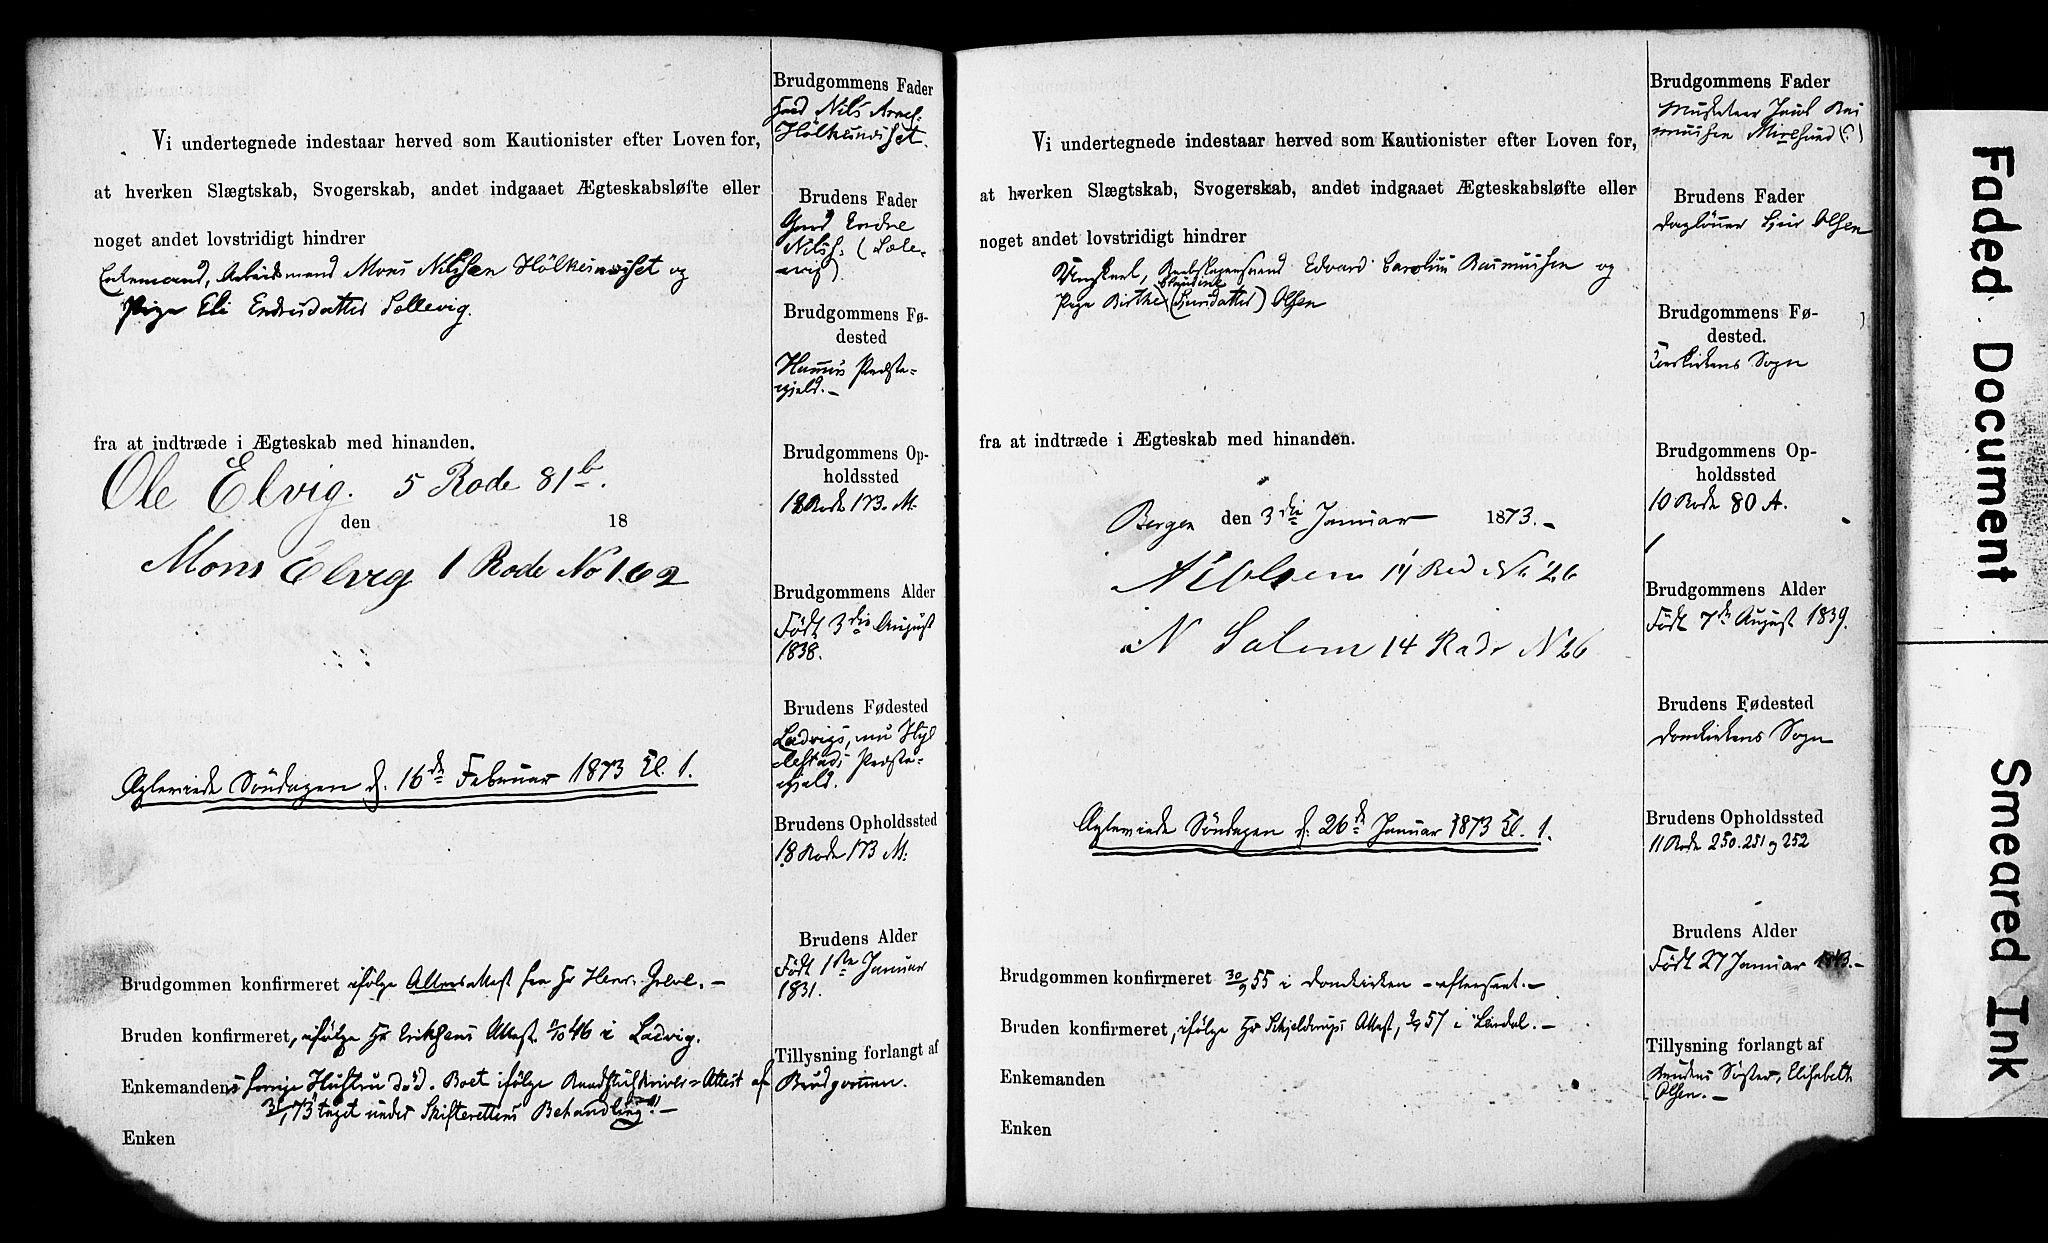 Vi undertegnede indestaar herved som Kautionister efter Loven for,
at hverken Slægtskab, Svogerskab, andet indgaaet Ægteskabsløfte eller
noget andet lovstridigt hindrer
Enkemand, Arbeidsmand Mons Nilssen Hölkesundset og
Pige Eli Endresdatter Sollevig.
fra at indtræde i Ægteskab med hinanden.
Ole Elvig. 5 Rode 81b.
den 18
Mons Elvig 1 Rode No 162
Agleviede Søndagen d. 16de Februar 1873 Kl. 1.
Brudgommen konfirmeret ifölge Altersattest fra Hr Henr. Gelve. –
Bruden konfirmeret, ifölge Hr Erichsens Attest 46 i Ladvig.
Enkemandens forrige Hustru död. Boet ifölge Attest af
73 taget under Skifterettens Behandling. –
Enken
Brudgommens Fader
Nils
Brudens Fader
Gmd Endre
Nilss. (Sole-
vig)
Brudgommens Fø-
dested
Hammers Præste-
gjeld. –
Brudgommens Op-
holdssted
18 Rode 173. M:
Brudgommens Alder
Födt 3die August
1838.
Brudens Fødested
Ladvigs, nu Hyl-
lestads Præste-
gjeld.
Brudens Opholdssted
18 Rode 173 M:
Brudens Alder
Födt 1ste Januar
1831.
Tillysning forlangt af
Brudgommen.
Vi undertegnede indestaar herved som Kautionister efter Loven for,
at hverken Slægtskab, Svogerskab, andet indgaaet Ægteskabsløfte eller
noget andet lovstridigt hindrer
Ungkarl, Edvard Carolius Rasmussen og
Blandine
Pige Birthe (Sjursdatter) Olsen
fra at indtræde i Ægteskab med hinanden.
Bergen den 3die Januar 1873. –
14 Rod No 26
N Salem 14 Rode N 26
Agleviede Söndagen d. 26de Januar 1873 Kl. 1.
Brudgommen konfirmeret 30/9 55 i Domkirken – –
Bruden konfirmeret, ifölge Hr Schjelderups Attest, 57 i Lærdal. –
Enkemanden
Enken
Brudgommens Fader
Musketeer Ras
mussen (?)
Brudens Fader
Daglönner Sjur Olsen
Brudgommens Fø-
dested.
Korskirkens Sogn
Brudgommens Op-
holdssted
10 Rode 80 A.
Brudgommens Alder
Födt 7de August 1839.
Brudens Fødested
Domkirkens Sogn
Brudens Opholdssted
11 Rode 250. 251 og 252
Brudens Alder
Födt 27 Januar 1843. –
Tillysning forlangt af
Brudens Søster, Elisabeth
Olsen. –
Faded Document
Smeared Ink